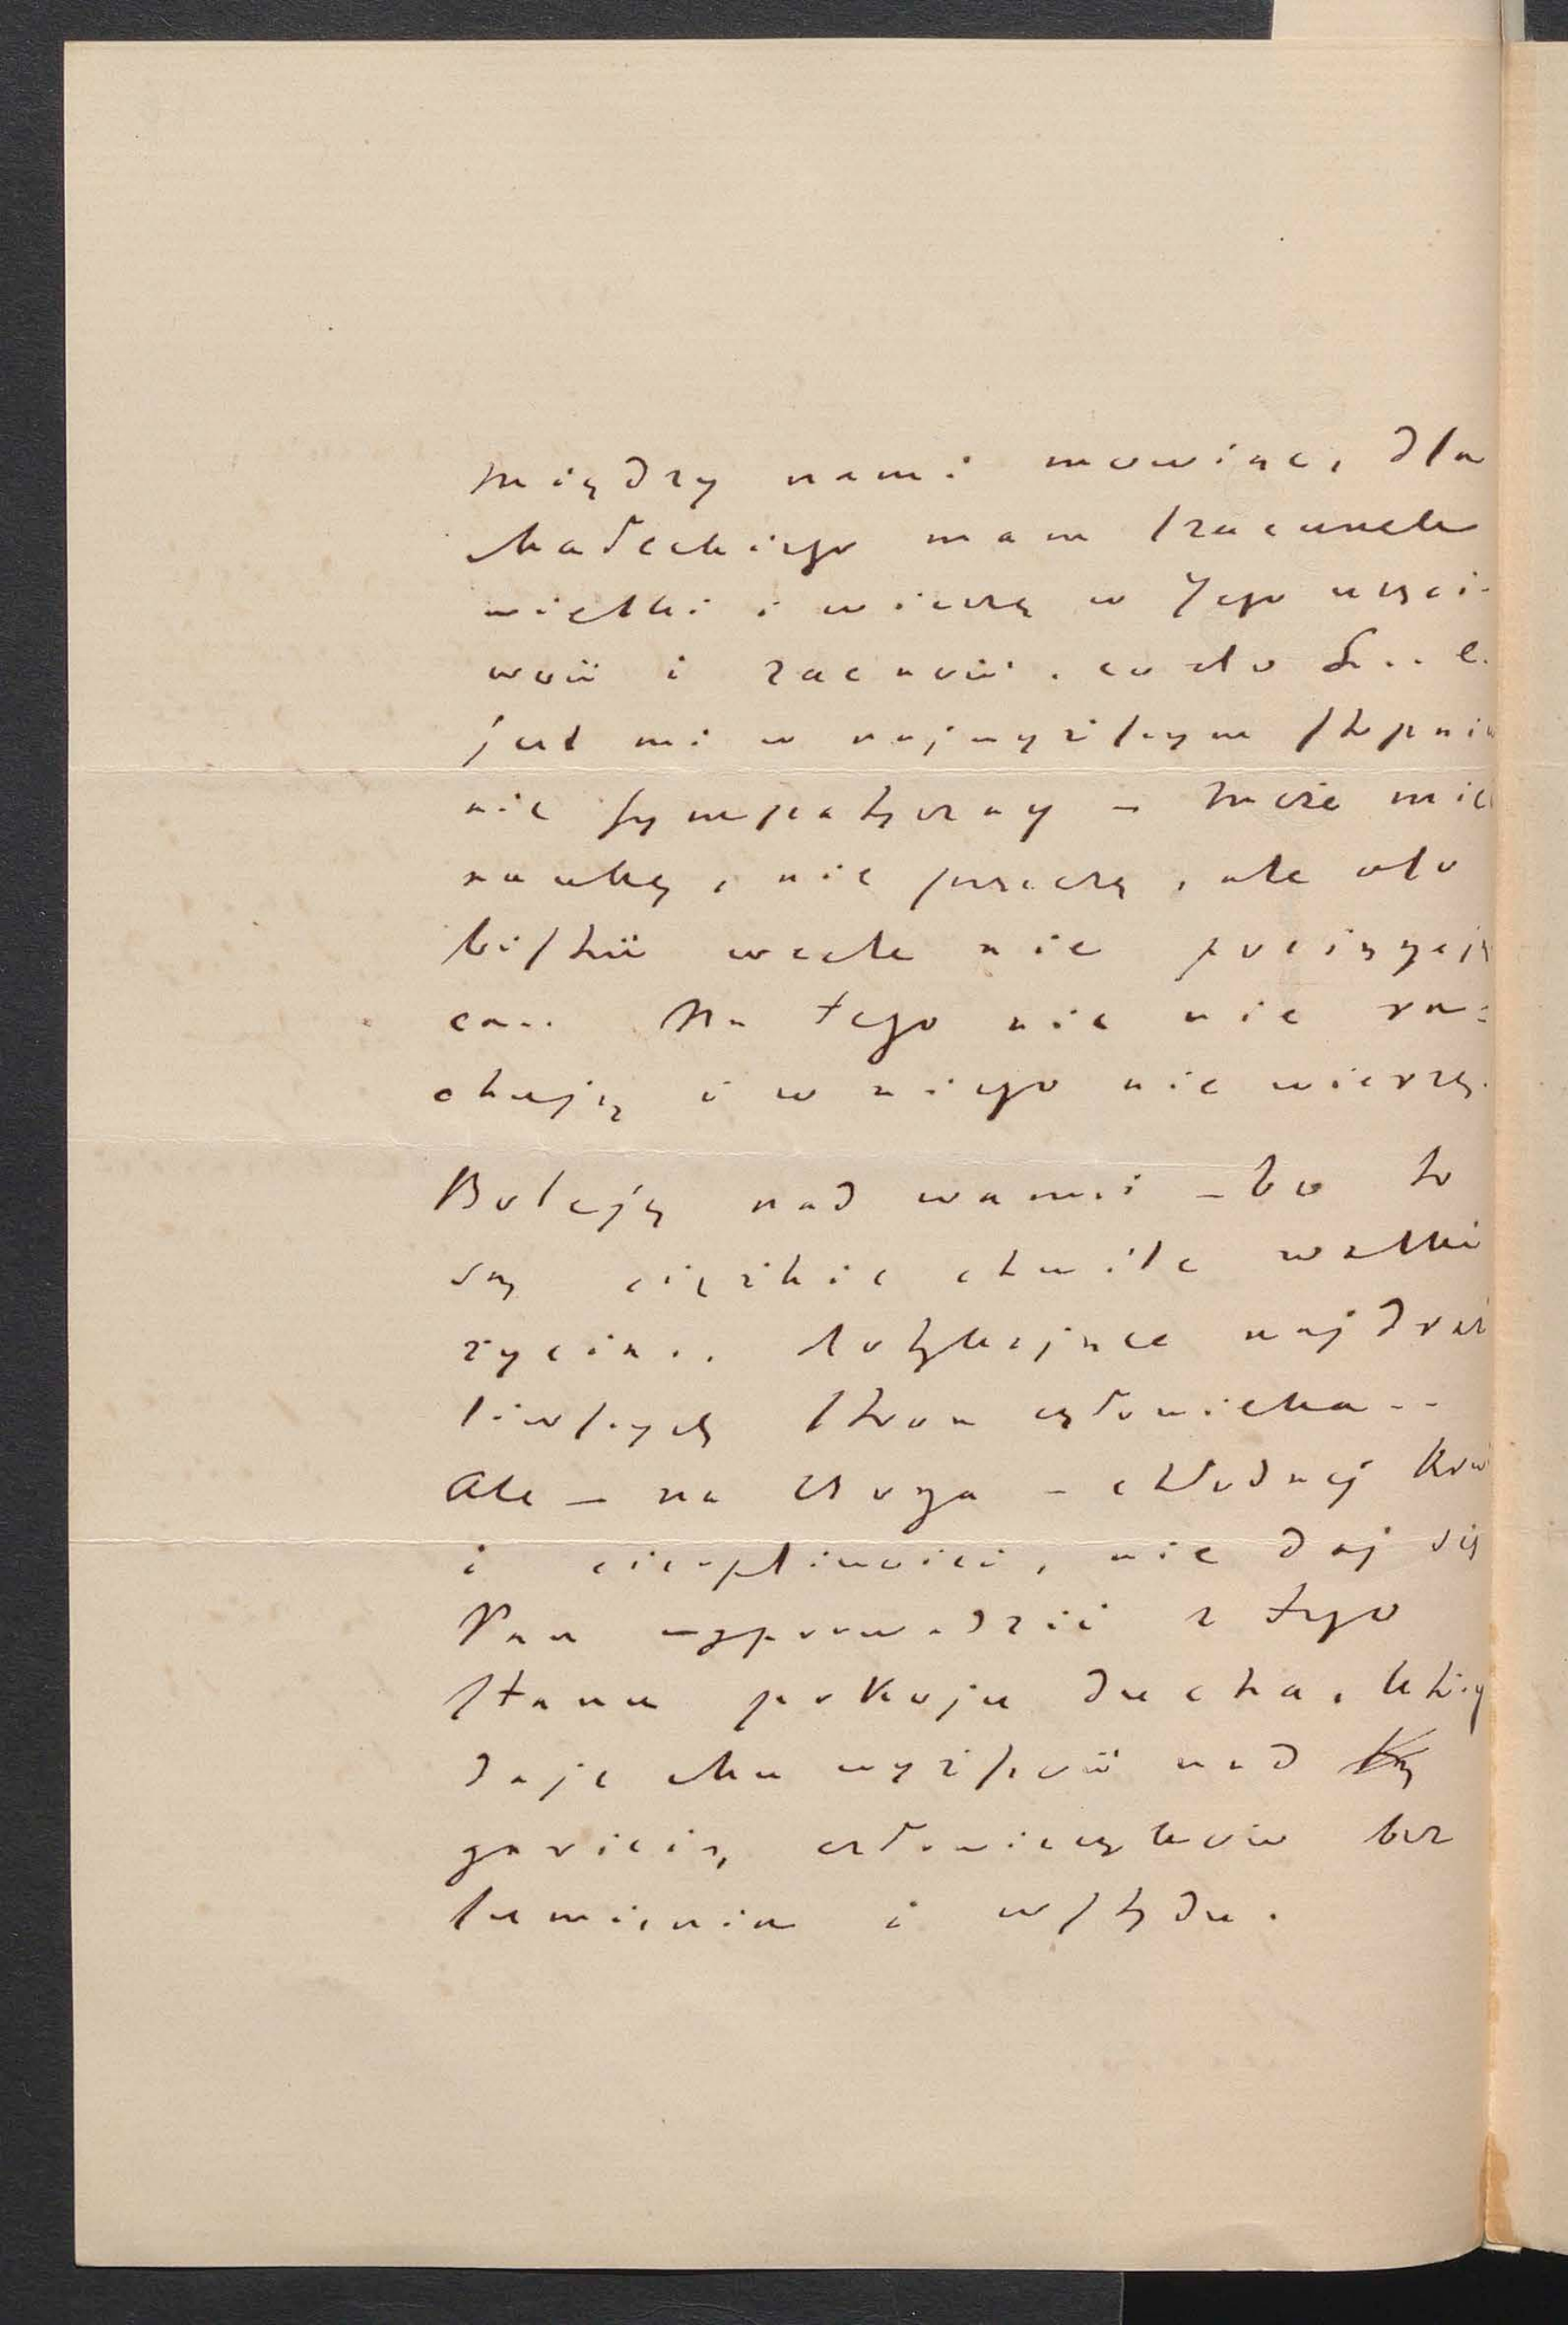 między nami mówiąc, dla
Małeckiego mam szacunek
wielki i wierzę w Jego uczci-
wość i zacność. co do S... e.
jest mi w najwyższym stopniu
nie sympatyczny — może mieć
naukę, nie przeczę, ale oso
bistość wcale nie pociągają
ca.. Na tego nic nie ra=
chuję i w niego nie wierzę.
Boleję nad wami — bo to
są ciężkie chwile walki
życia.. dotykające najdraż
liwszych stron człowieka..
Ale — na Boga — chłodnej krwi
i cierpliwości, nie daj się
Pan wyprowadzić z tego
stanu pokoju ducha, który
daje mu wyższość nad
garścią człowieczków bez
sumienia i wstydu.